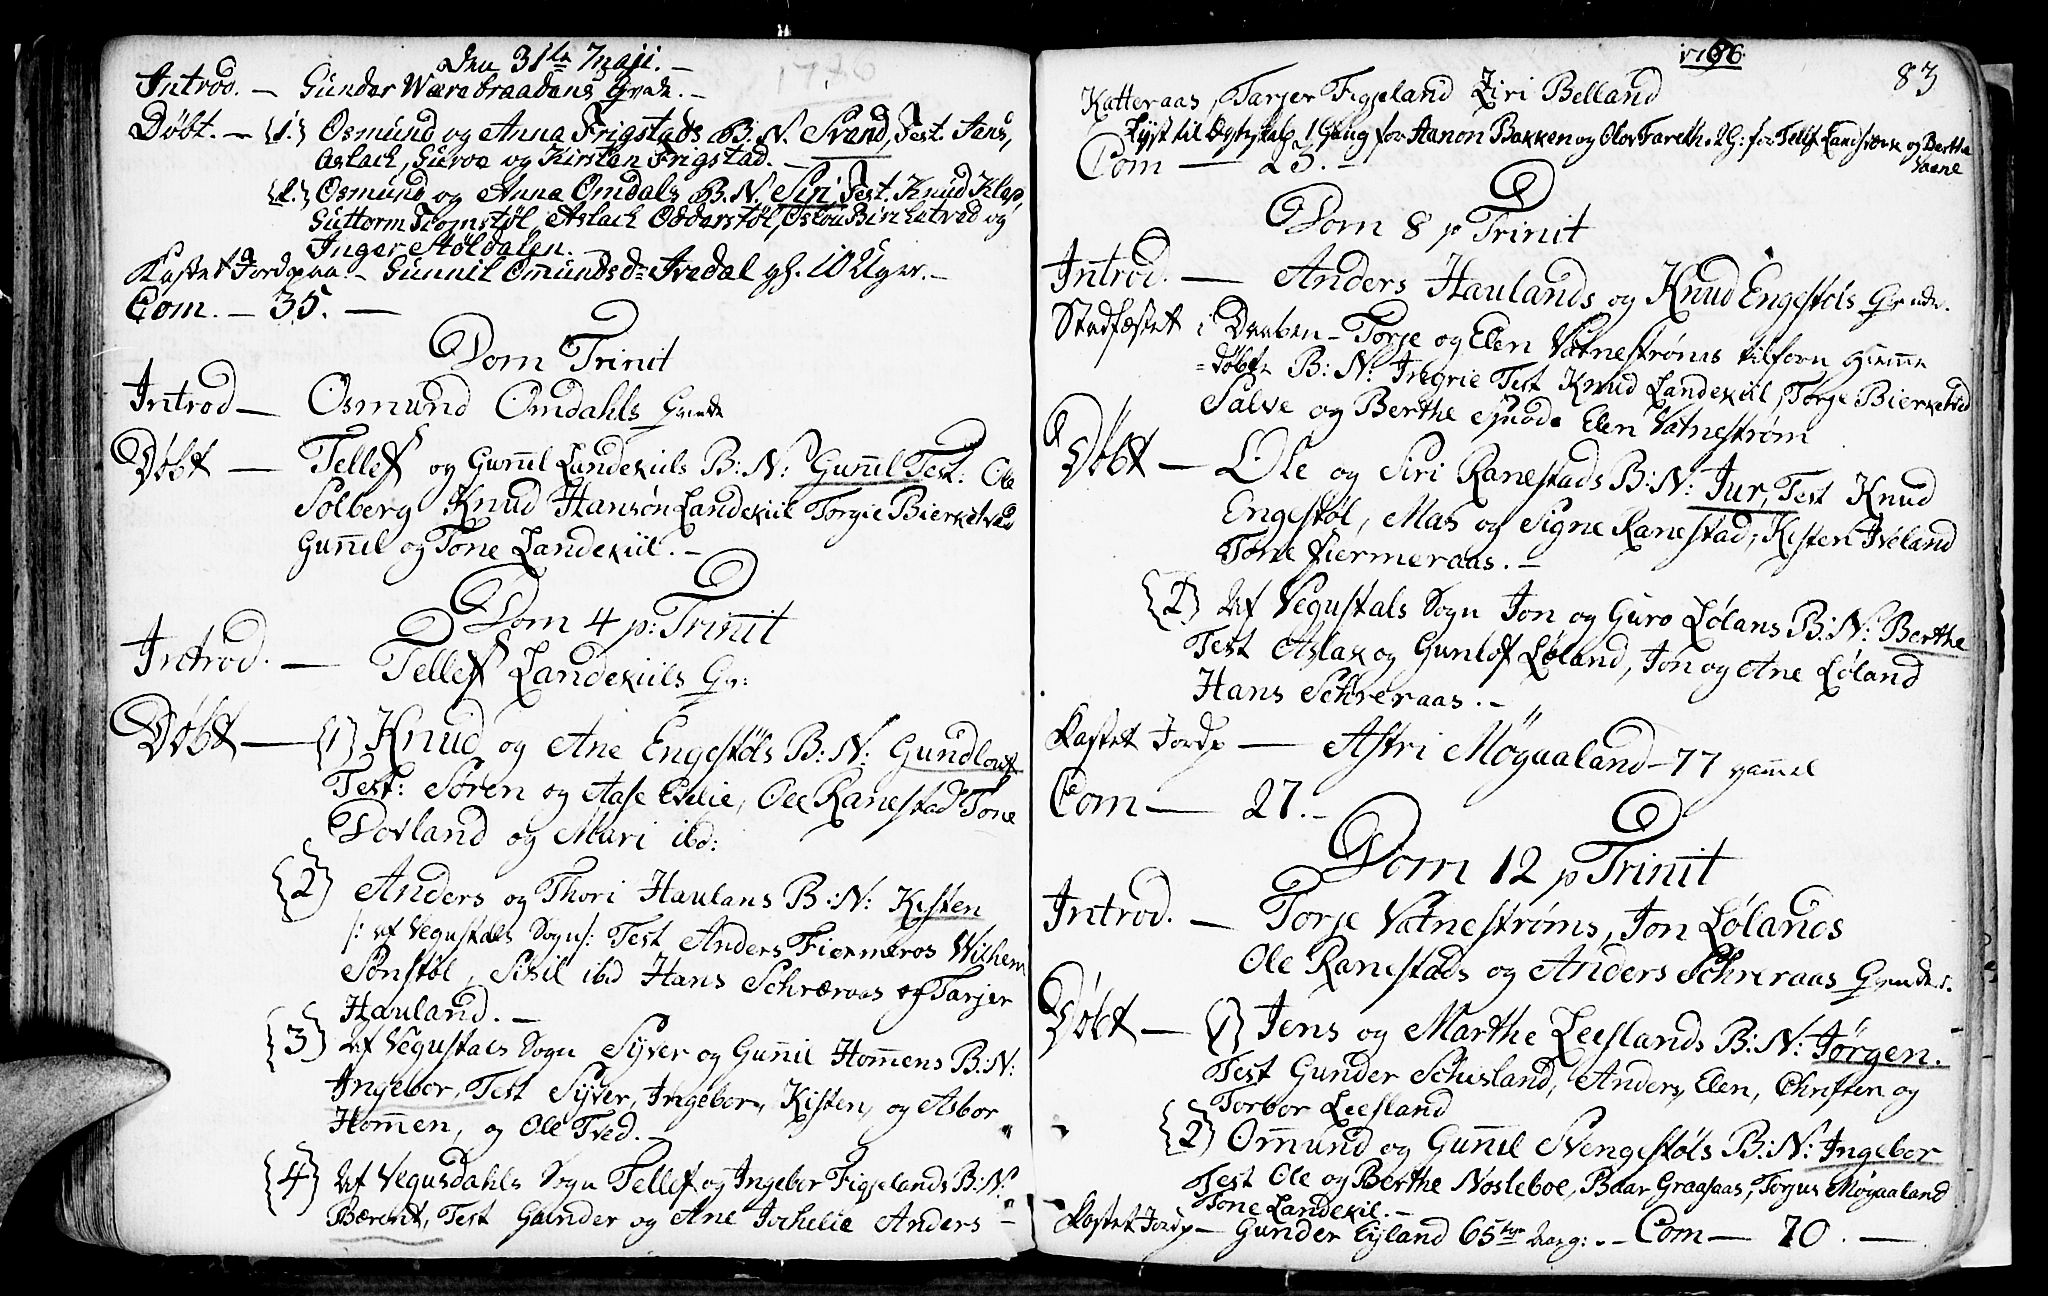 Den 31te Maji. –
1776
Introd. – Gunder Wærebraadens Grde. –
Døbt. – {1.} Osmund og Anna Frigstads B. N. Svend, Test. Jens,
Aslach, Guroe og Kirsten Frigstad. –
{2.} Osmund og Anna Omdals B. N. Siri, Test. Knud Klep,
Guttorm, Aslach Oddersstøl, Birketved og
Inger Støldalen.
Kastet Jord paa – Gunnil Omundsdr Ivedal gl. 10 Uger. –
Com. – 35. –
Dom Trinit
Introd – Osmund Omdahls Grede
Døbt – Tellef og Guñil Landekiils B: N: Guñil Test: Ole
Solberg Knud Hansøn Landekiil Torgie Bierketved
Guñil og Tone Landekiil. –
Dom 4 p: Trinit
Introd. – Tellef Landekiils Gr:
Døbt – {1} Knud og Ane Engestøls B: N: Gundlouf
Test: Søren og Aase Evelie, Ole Ranestad Tone
Dovland og Mari ibd:
{2} Anders og Thori Haulans B: N: Kisten
/: af Vegustals Sogn :/ Test Anders Fiermeros Wilhem
Sonstøl, Sisil ibd Hans Schræraas og Tarjer
Hauland. –
{3} Af Vegustals Sogn Syver og Guñil Hom̄ens B: N:
Ingebor, Test Syver, Ingebor, Kisten, og Asbor
Hom̄en, og Ole Tved. –
{4} Af Vegusdahls Sogn Tellef og Ingebor Figjelands B: N:
Bærent, Test Gunder og Ane Anders –
1786.
83
Katteraas, Tarjer Figjeland Ziri Belland
Lyst til Ægteskab 1 Gang for Aanon Bakken og Olov Fareth. 2 G: for Tellef Landsværk og Berthe
Vaane
Com – 25. –
Dom 8 p Trinit
Introd. – Anders Haulands og Knud Engestøls Grede.
Stadfæstet i Daaben – Torje og Elen Vatnestrøms tilforn Hiem̄e
=døbte B: N: Ingrie Test Knud Landekiil, Torge Bierketved
Salve og Berthe Elen Vatnestrøm
Døbt – Ole og Siri Ranestads B: N: Jur, Test Knud
Engestøl, Mas og Signe Ranestad, Kisten Iveland
Tone Fiermeraas. –
{2} Af Vegustals Sogn Jon og Guro Lølans B: N: Berthe
Test Aslak og Gunlof Løland, Jon og Ane Løland
Hans Schreraas. –
Kastet Jord p – Astri Møgaaland – 77 gam̄el
Com – 27. –
Dom 12 p Trinit
Introd. – Torje Vatnestrøms, Jon Lølands
Ole Ranestads og Anders Schreraas Grendes.
Døbt – {1} Jens og Marthe Leeslands B: N: Jørgen.
Test Gunder Schisland, Anders, Elen, Christen og
Torbor Leesland
{2} Om̄und og Guñil Svengestøls B: N: Ingebor
Test Ole og Berthe Nosleboe, Baar Graasaas, Torjus Møgaaland
Tone Landekiil. –
Kastet Jord p – Gunder Eyland 65 Aarg: – Com – 70. –